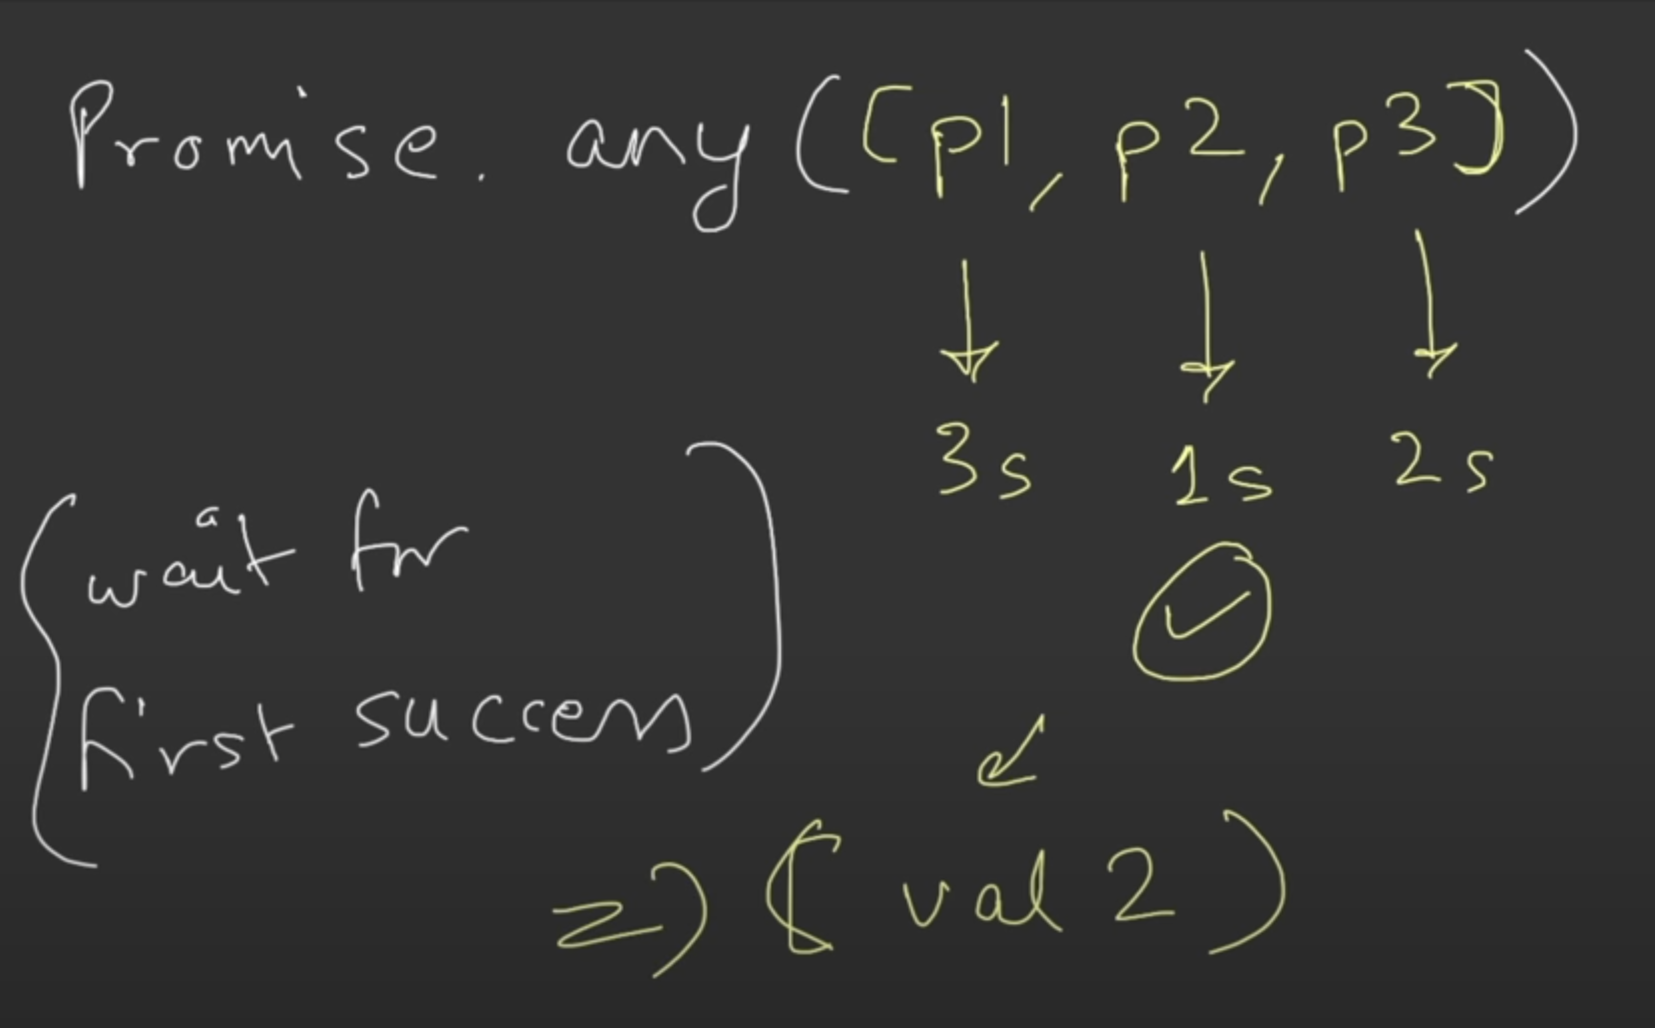 Promise. any([p1, p2, p3])
3s 1s 2s
wait for
first success
=> (val 2)